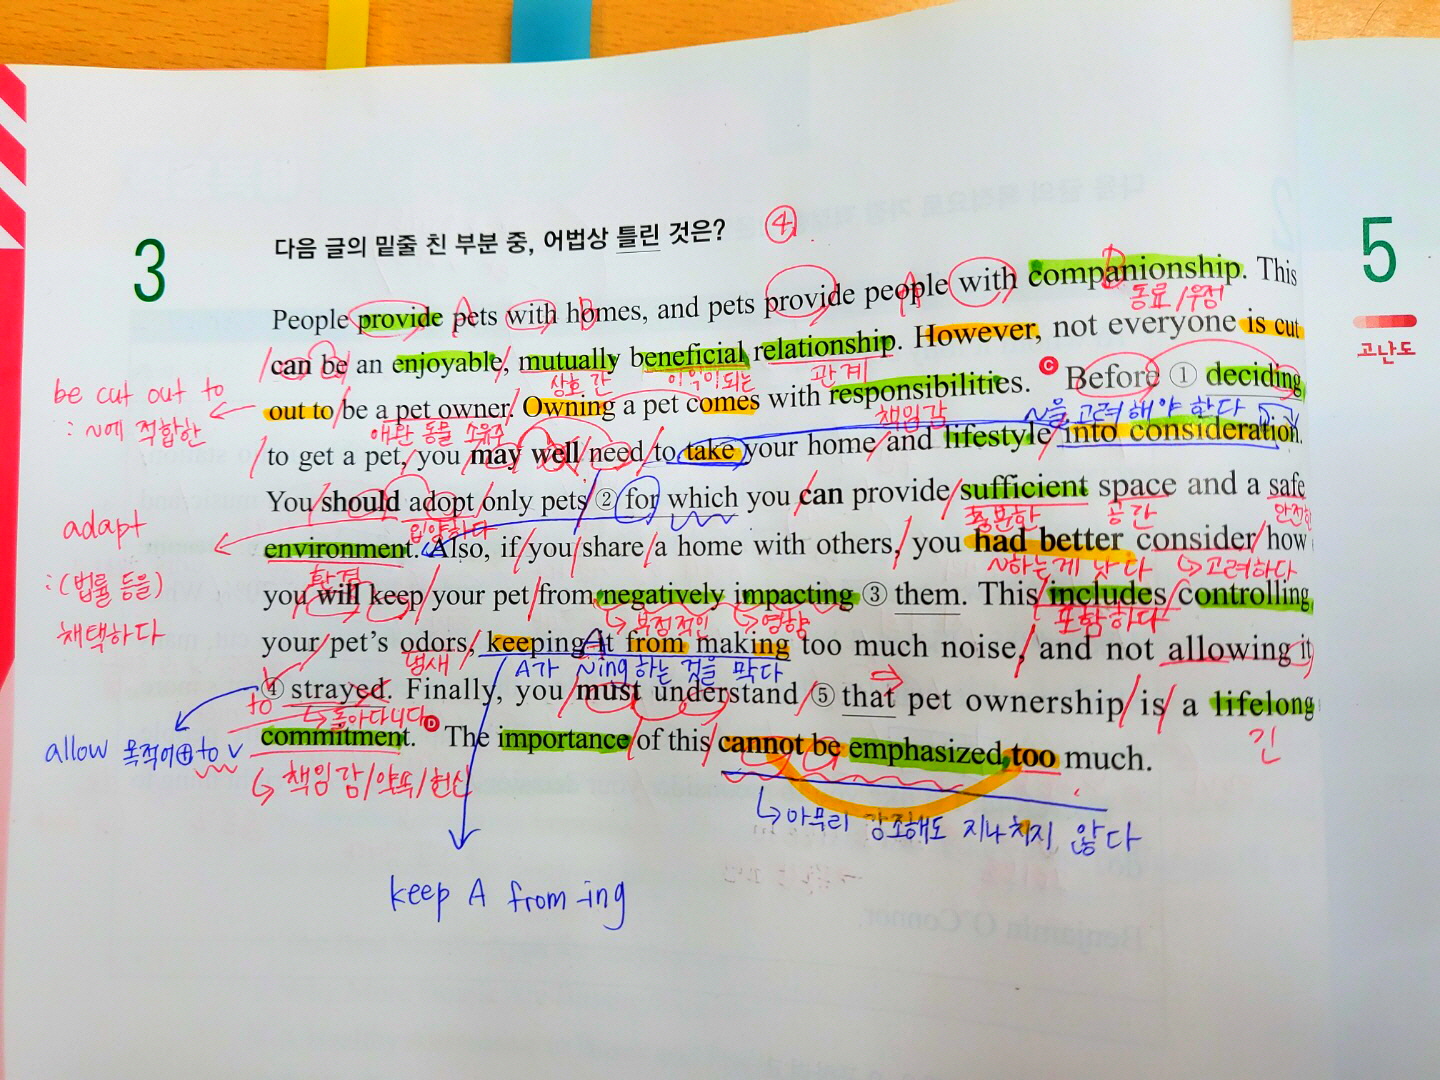 3
다음 글의 밑줄 친 부분 중, 어법상 틀린 것은? ④
5
고난도
People provide pets with homes, and pets provide people with companionship. This
A B A B 동료/우정
can be an enjoyable, mutually beneficial relationship. However, not everyone is cut
상호 간 이익이되는 관계
be cut out to
: ~에 적합한
out to be a pet owner. Owning a pet comes with responsibilities. C Before ① deciding
애완 동물 소유주 책임감 ~을 고려해야 한다
to get a pet, you may well need to take your home and lifestyle into consideration.
You should adopt only pets ② for which you can provide sufficient space and a safe
입양하다 충분한 공간 안전한
adapt
: (법률 등을)
채택하다
environment. Also, if you share a home with others, you had better consider how
환경 ~하는게 낫다 고려하다
you will keep your pet from negatively impacting ③ them. This includes controlling
부정적인 영향 포함하다
your pet's odors, keeping it from making too much noise, and not allowing it
냄새 A A가 ~ing하는 것을 막다
④ strayed. Finally, you must understand ⑤ that pet ownership is a lifelong
to 돌아다니다 긴
allow 목적어 + to v
commitment. D The importance of this cannot be emphasized too much.
책임감/약속/헌신
아무리 강조해도 지나치지 않다
keep A from -ing